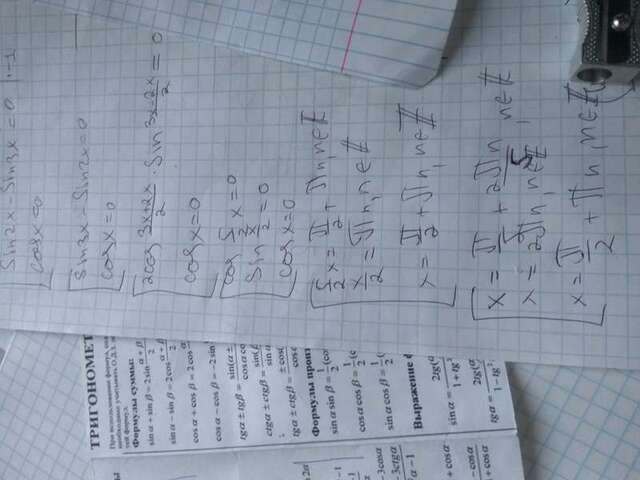 sin2x - sin3x = 0 | ·-1
cosx = 0
sin3x - sin2x = 0
cosx = 0
2cos (3x+2x)/2 · sin (3x-2x)/2 = 0
cosx = 0
cos 5/2 x = 0
sin x/2 = 0
cosx = 0
5/2 x = π/2 + πn, n∈Z
x/2 = πn, n∈Z
x = π/2 + πn, n∈Z
x = π/5 + 2πn/5, n∈Z
x = 2πn, n∈Z
x = π/2 + πn, n∈Z
ТРИГОНОМЕТ
При использовании формул,
необходимо учитывать О.Д.З.
Формулы суммы:
sin α + sin β = 2 sin (α + β)/2
sin α − sin β = 2 cos (α + β)/2
cos α + cos β = 2 cos
cos α − cos β = −2 sin
tg α ± tg β = sin(α ±/cos α co
ctg α ± ctg β = sin(β/sin α
tg α ± ctg β = ± cos(/cos α
Формулы произ
sin α sin β = 1/2 (cos
cos α cos β = 1/2 (c
sin α cos β = 1/2 (
Выражение
sin α = 2tg(/1 + tg²
tg α = 2tg(/1 − tg²